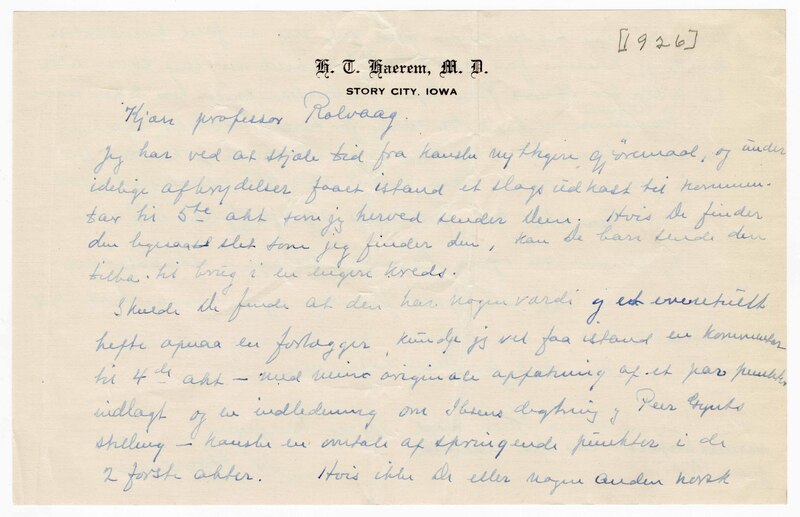 [1926]
H. T. Haerem, M. D.
STORY CITY, IOWA
Kjære professor Rolvaag.
Jeg har ved at stjæle tid fra kanske nyttigere gjöremaal, og under
idelige afbrydelser faaet istand et slags udkast til kommen-
tar til 5te akt som jeg herved sender Dem. Hvis De finder
den ligesaa slet som jeg finder den, kan De bare sende den
tilba. til brug i en engere kreds.
Skulde De finde at den har nogen værdi og et eventuelt
hefte opnaa en forlægger, kunde jeg vel faa istand en kommentar
til 4de akt — med mine originale opfatning af et par punkter
indlagt og en indledning om Ibsens digtning og Peer Gynts
stilling — kanske en omtale af springende punkter i de
2 förste akter. Hvis ikke De eller nogen anden norsk